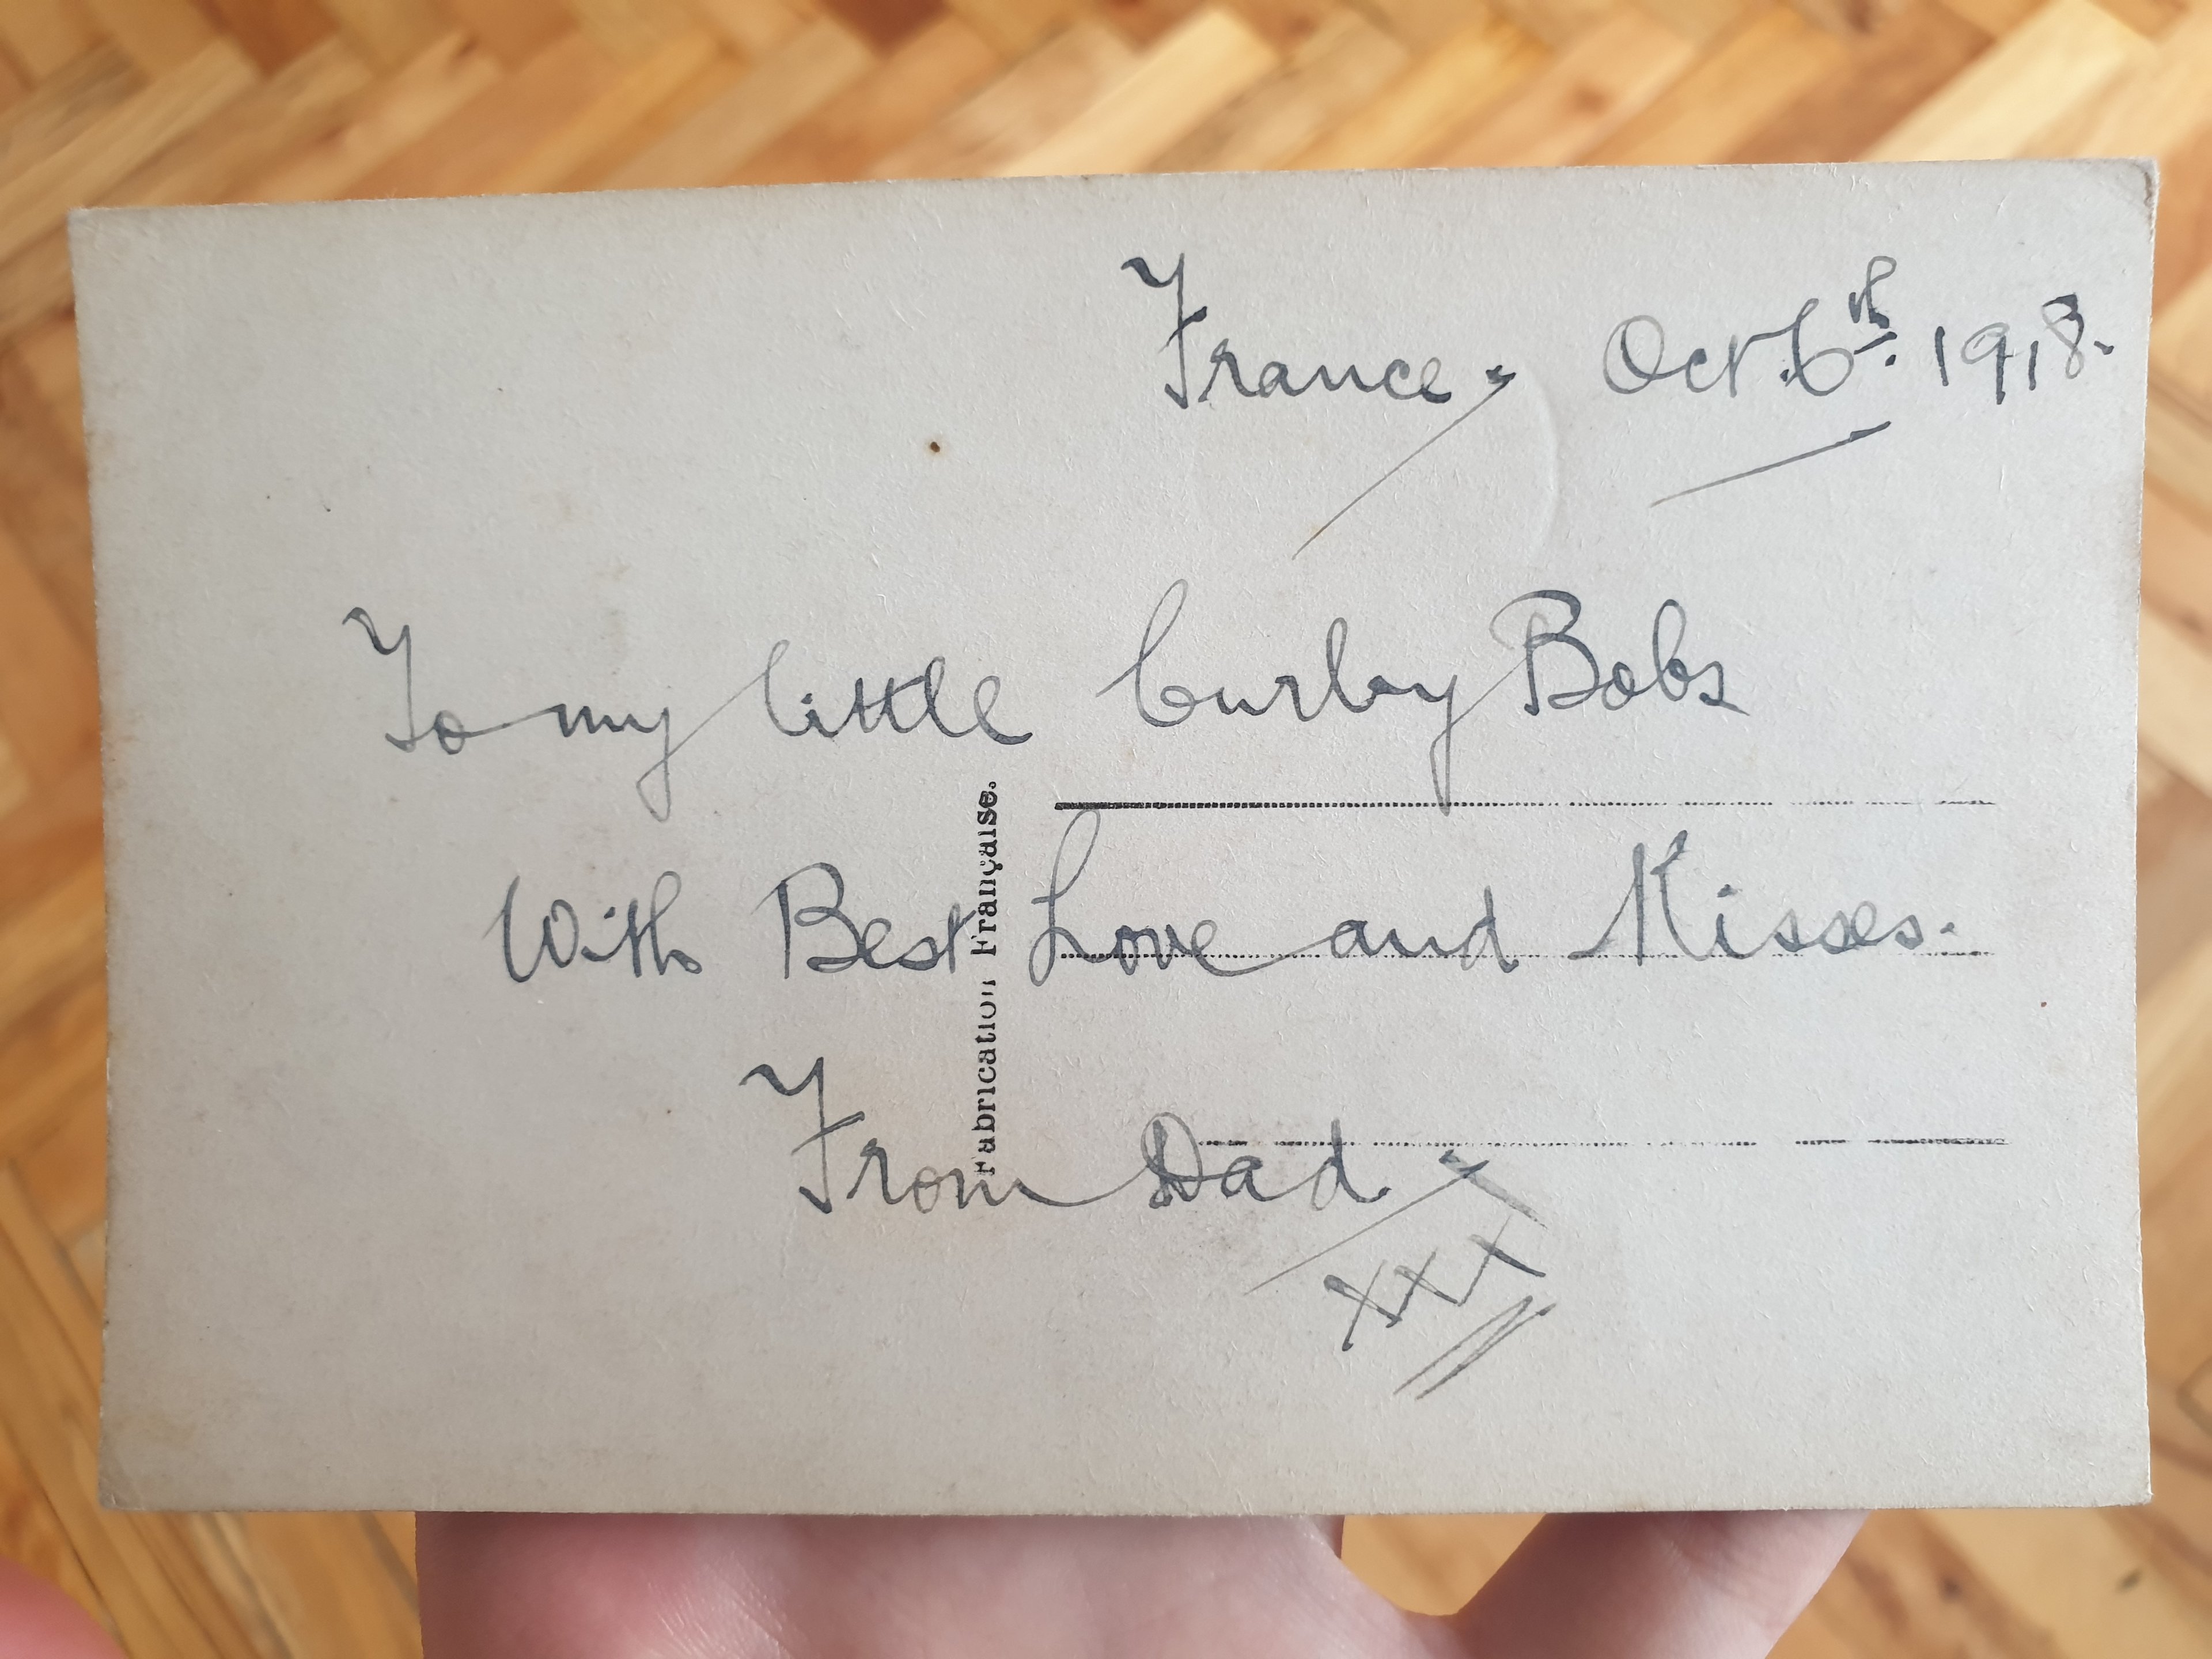 France. Oct. 6th. 1918.
To my little Curley Bobs
With Best Love and Kisses.
Fabrication Française.
From Dad.
XXX